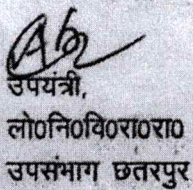 उपयंत्री,
लो०नि०वि०रा०रा०
उपसंभाग छतरपुर